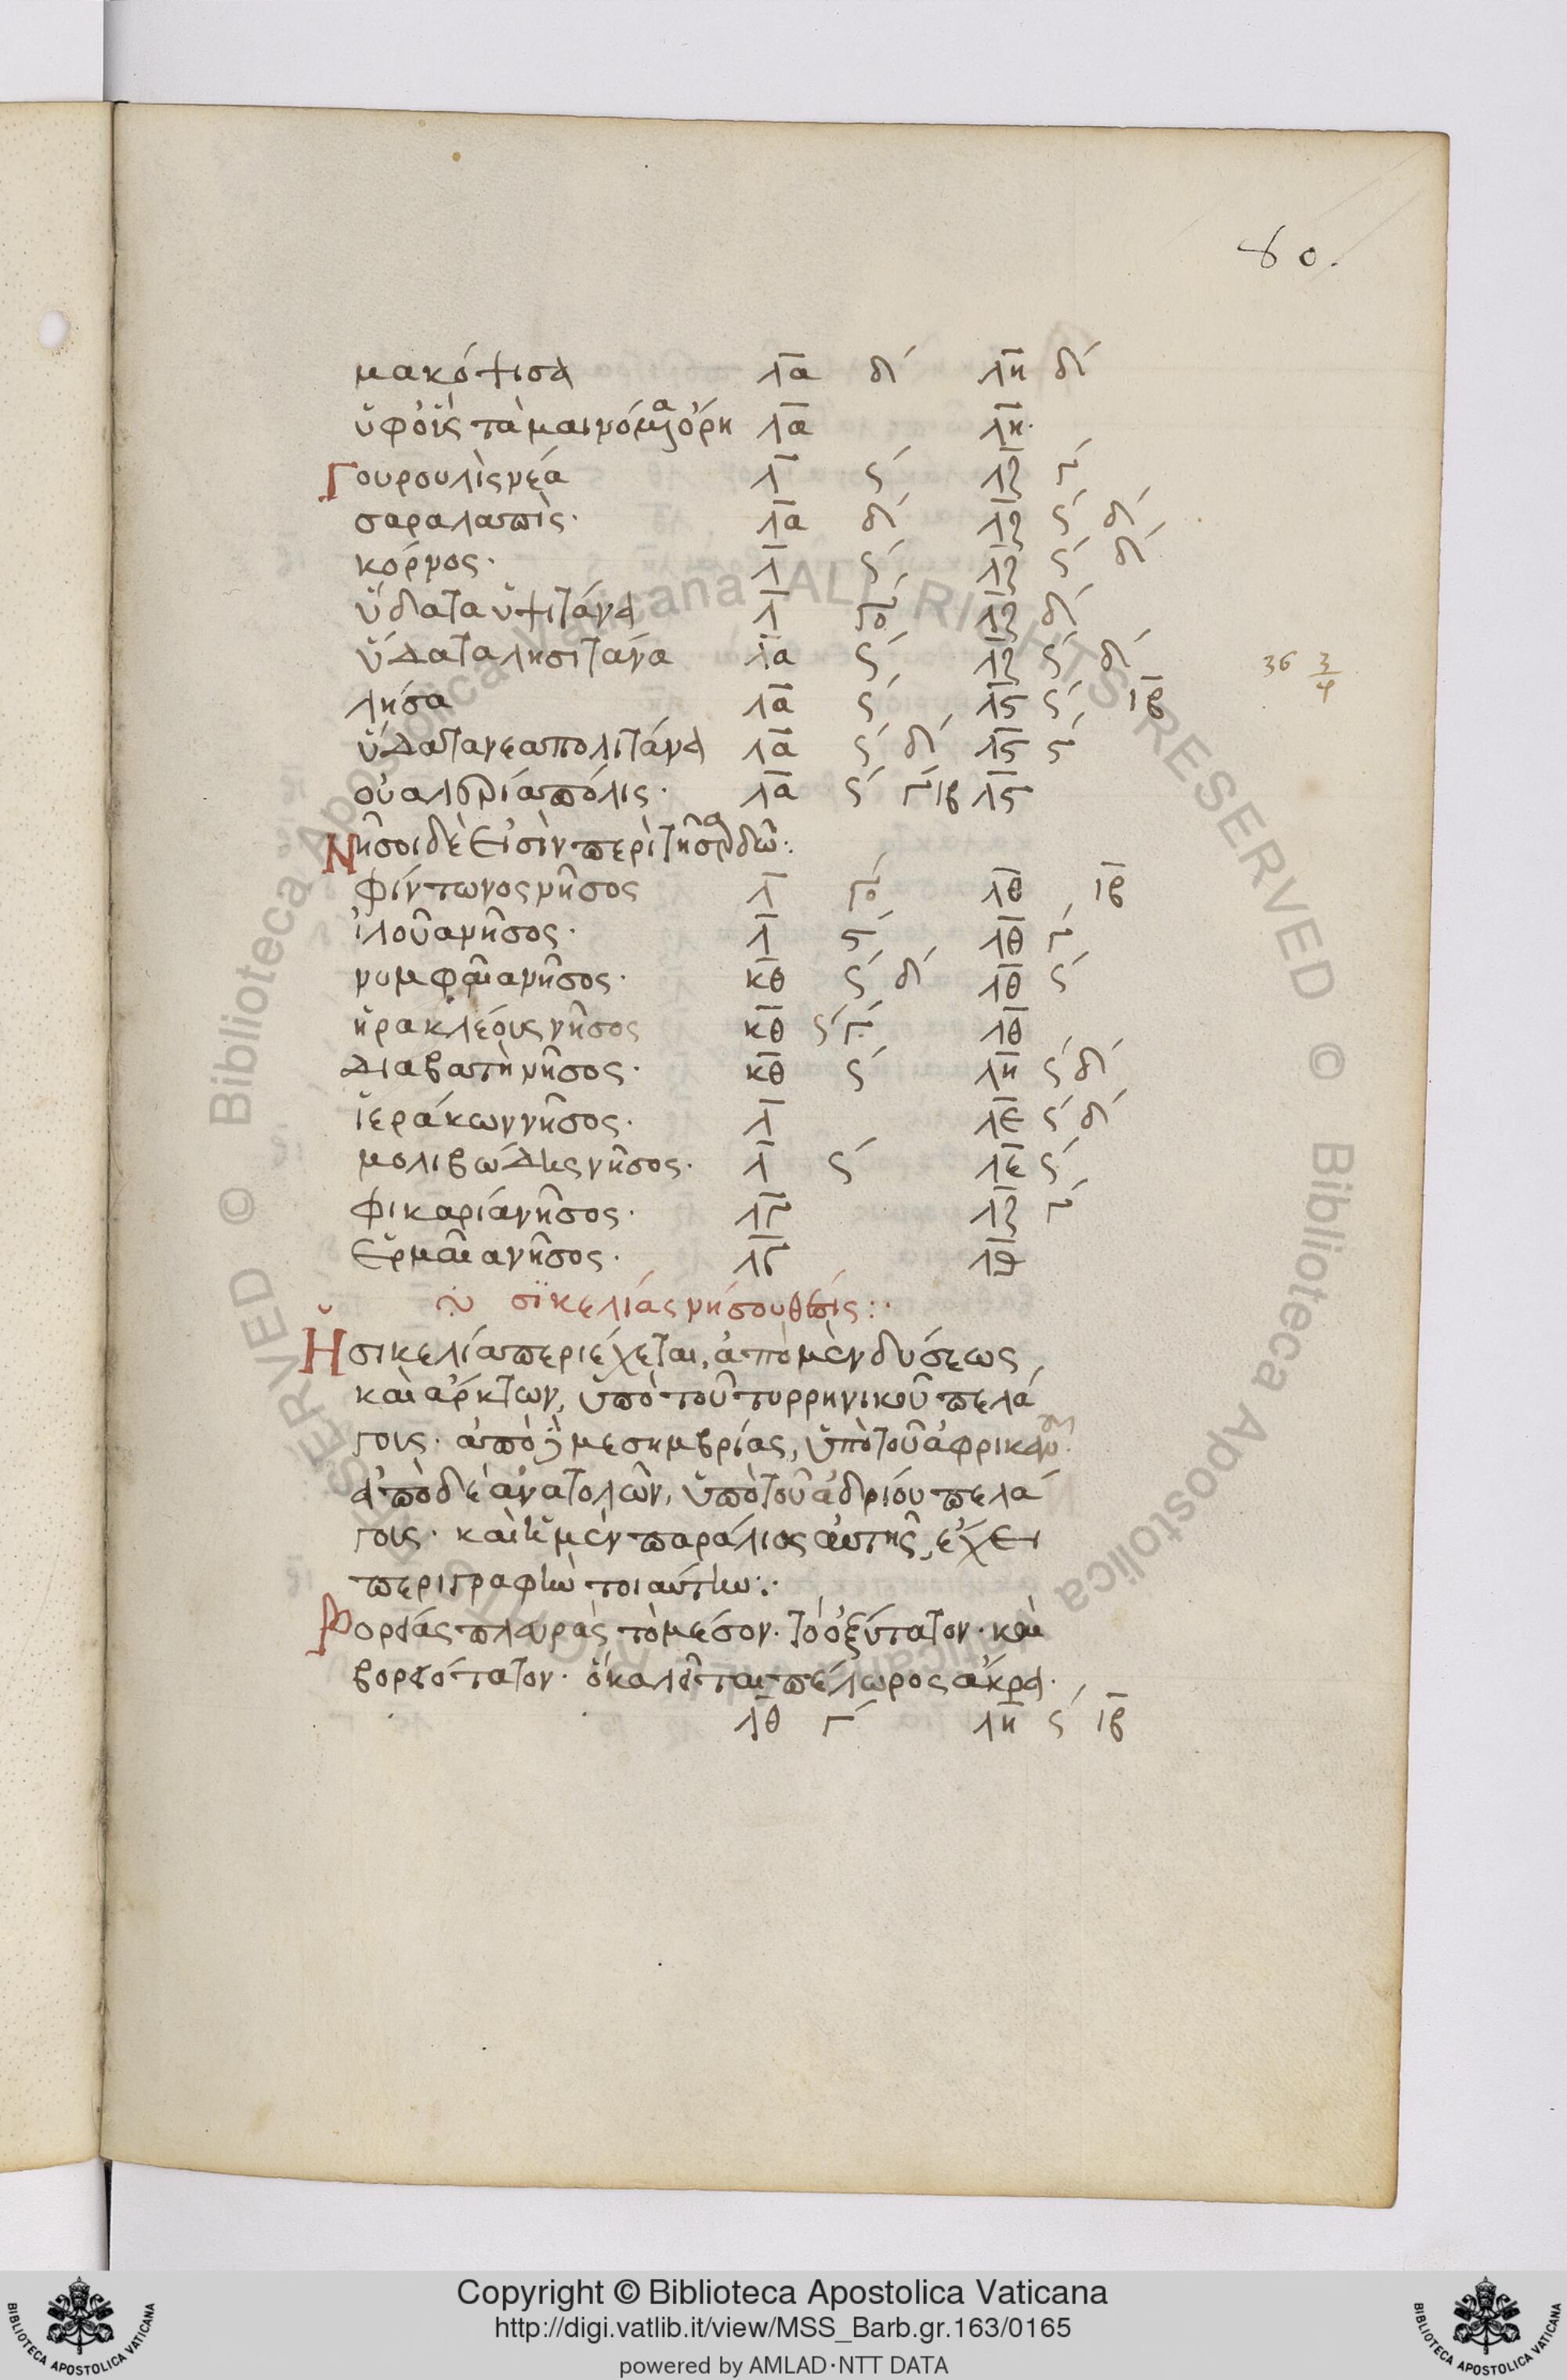 80.
μακόψισα λα δ´ λη δ´
ὑφ' οἷς τὰ μαινόμενα ὄρη λα λη·
Γουρουλὶς νέα λ ς´ λζ γ´
σαραλαπὶς· λα δ´ λζ ς´ δ´
κόρνος· λ ς´ λζ ς´ δ´
ὕδατα ὑψιτάνα λ γο´ λζ δ´
ὕδατα λησιτάνα λα ς´ λζ ς´ δ´
36 3/4
λήσα λα ς´ λϛ ς´ ιβ
ὕδατα νεαπολιτάνα λα ς´ δ´ λϛ ϛ´
οὐαλερίαπόλις· λα ς´ γ´ ιβ λϛ
Νῆσοι δὲ εἰσὶν περὶ τῆ σαρδῶ:.
φίντωνος νῆσος λ γο´ λθ ιβ
ἰλοῦα νῆσος· λ ϛ´ λθ γ´
νυμφαῖα νῆσος· κθ ς´ δ´ λθ ς´
ἡρακλέους νῆσος κθ ς´ γ´ λθ
διαβατὴ νῆσος· κθ ς´ λη ς´ δ´
ἱεράκων νῆσος· λ λε ς´ δ´
μολιβώδης νῆσος· λ ς´ λε ς´
φικαρία νῆσος· λγ λζ γ´
ἑρμαῖα νῆσος· λγ λθ
σϊκελίας νήσου θέσις:·
Ἡ σικελία περιέχεται, ἀπὸ μὲν δύσεως
καὶ ἄρκτων, ὑπὸ τοῦ τυρρηνικοῦ πελά
γους· ἀπὸ δὲ μεσημβρίας, ὑπὸ τοῦ ἀφρικανοῦ·
ἀπὸ δὲ ἀνατολῶν, ὑπὸ τοῦ ἀδρίου πελά
γους· καὶ ἡ μὲν παράλιος αὐτῆς, ἔχει
περιγραφὴν τοιαύτην:·
Βορεάς πλευρᾶς τὸ μέσον· τὸ ὀξύτατον· καὶ
βορειότατον· ὃ καλεῖται πέλωρος ἄκρα·
λθ γ´ λη ς´ ιβ
Copyright © Biblioteca Apostolica Vaticana
http://digi.vatlib.it/view/MSS_Barb.gr.163/0165
powered by AMLAD·NTT DATA